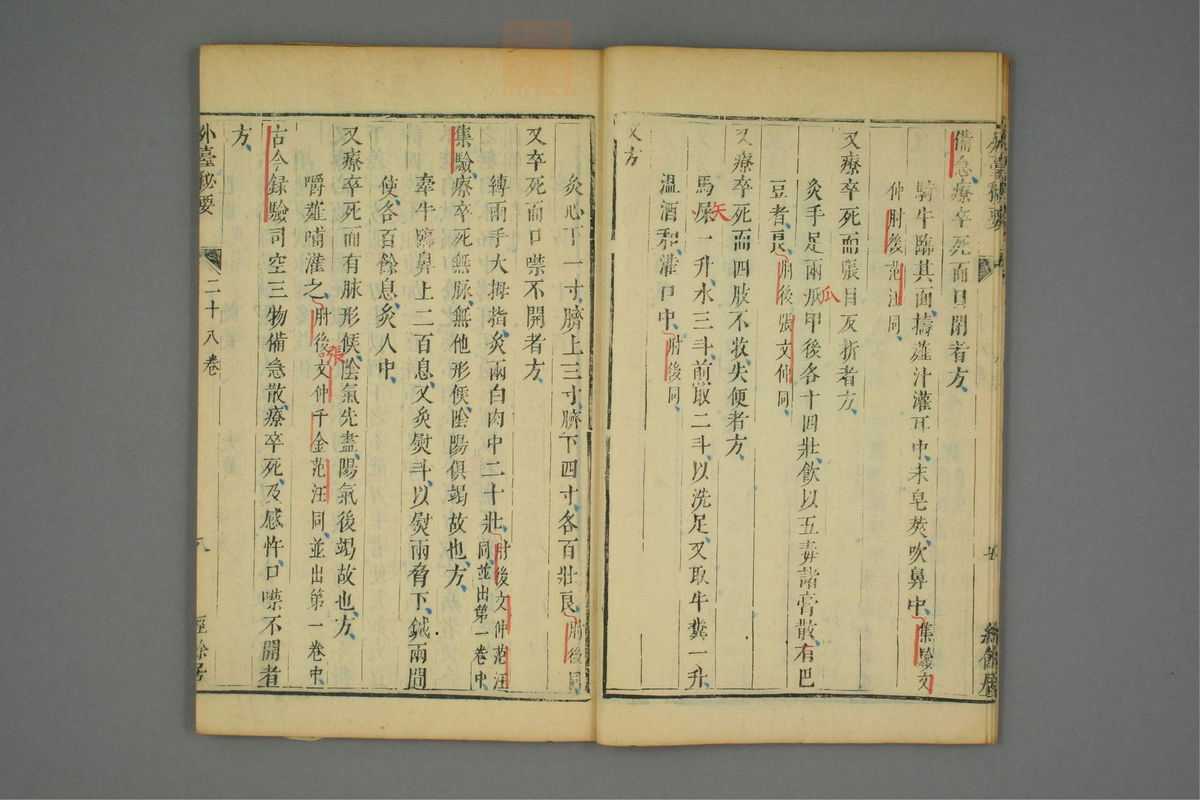 備急療卒死而口閉者方
騎牛臨其面擣薤汁灌耳中末皂莢吹鼻中集驗文
仲肘後范汪同
又療卒死而張目反折者方
灸手足兩爪甲後各十四壯飲以五毒諸膏散有巴
豆者良肘後張文仲同
又療卒死而四肢不收失便者方
馬屎一升水三斗煎取二斗以洗足又取牛糞一升
矢
温酒和灌口中肘後同
又方
灸心下一寸臍上三寸臍下四寸各百壯良肘後同
又卒死而口噤不開者方
縛兩手大拇指灸兩白肉中二十壯肘後文仲范汪
同並出第一卷中
集驗療卒死無脉無他形候陰陽俱竭故也方
牽牛臨鼻上二百息又灸熨斗以熨兩脅下鍼兩間
使各百餘息灸人中
又療卒死而有脉形候陰氣先盡陽氣後竭故也方
嚼薤哺灌之肘後文仲千金范汪同並出第一卷中
張
古今録驗司空三物備急散療卒死及感忤口噤不開者
方
外臺秘要 二十八卷 八 經餘居